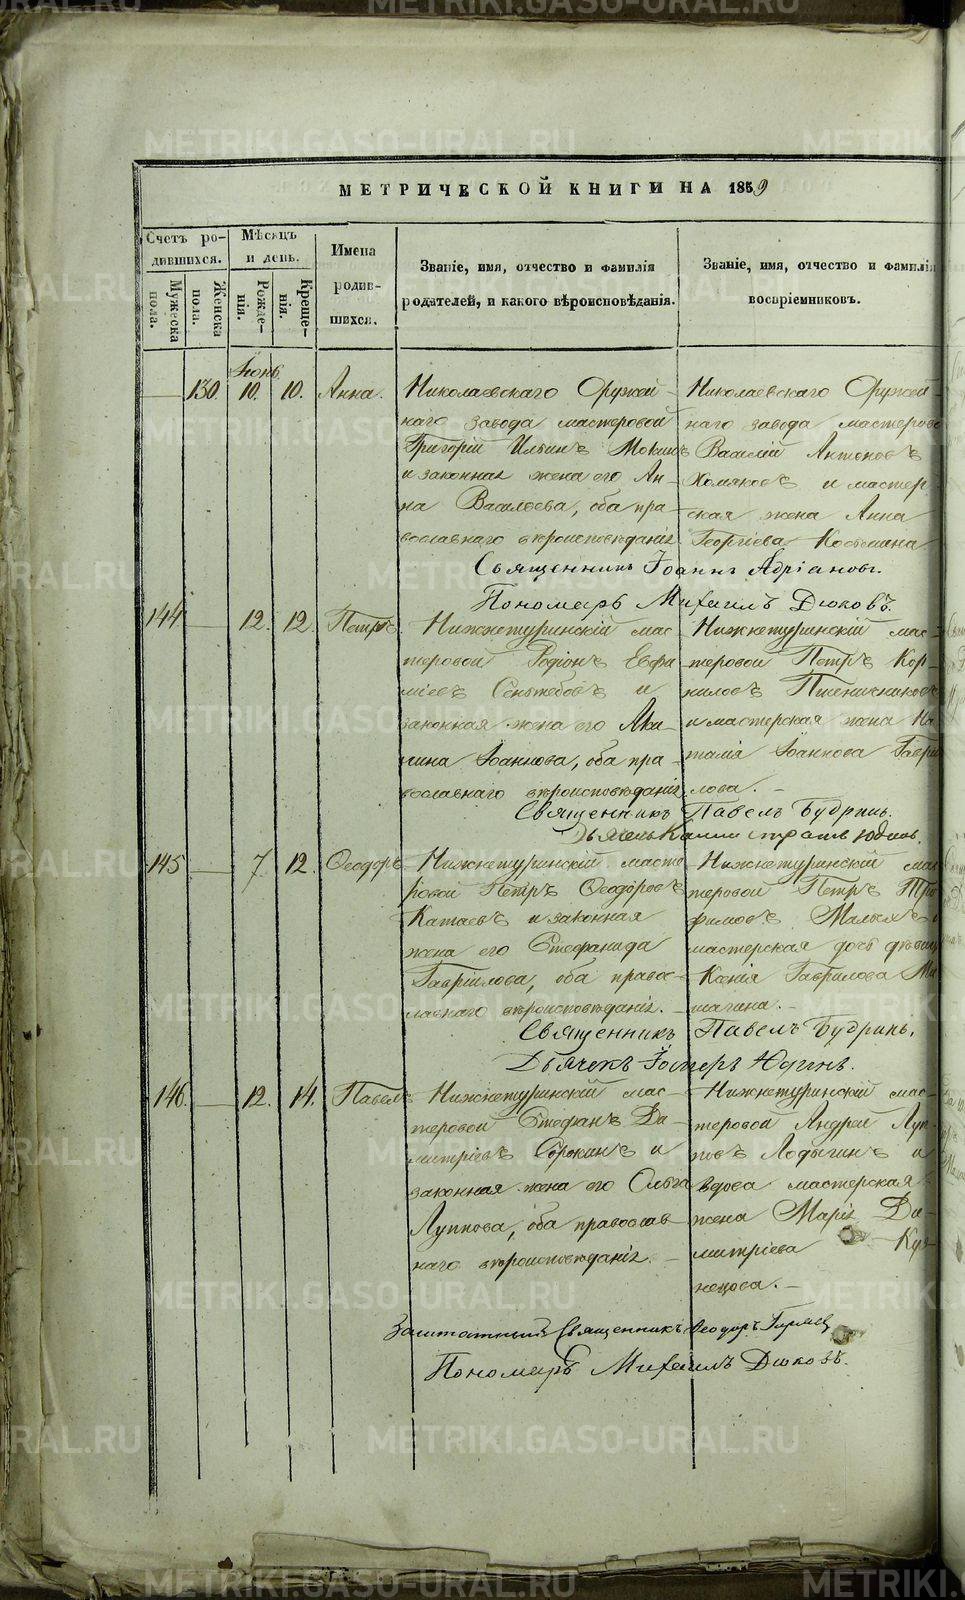 METRIKI.GASO-URAL.RU
МЕТРИЧЕСКОЙ КНИГИ НА 1859
Счетъ ро-
дившихся.
Мужеска
пола.
Женска
пола.
Мѣсяцъ
и день.
Рожде-
нія.
Креще-
нія.
Имена
родив-
шихся.
Званіе, имя, отчество и фамилія
родителей, и какого вѣроисповѣданія.
Званіе, имя, отчество и фамилія
воспріемниковъ.
Іюнь
130. 10. 10. Анна.
Николаевскаго Оружей-
наго завода мастеровой
Григорій Ильинъ Мокинъ
и законная жена его Ан-
на Васильева, оба пра-
вославнаго вѣроисповѣданія.
Николаевскаго Оружей-
наго завода мастерово
Василій Антоновъ
Хомяковъ и мастер
ская жена Анна
Георгіева Костылина
Священникъ Іоаннъ Адріановъ.
Пономарь Михаилъ Дюковъ.
144 12. 12. Петръ.
Нижнетуринскій мас-
теровой Родіонъ Евфи
міевъ и
законная жена его Аки-
лина Іоаннова, оба пра-
вославнаго вѣроисповѣданія.
Нижнетуринскій мас-
теровой Петръ Кор-
ниловъ Пшеничниковъ
и мастерская жена На
талія Іоаннова Гаври
лова.
Священникъ Павелъ Будринъ.
Юдинъ.
145 7. 12. Ѳеодоръ
Нижнетуринскій масте
ровой Петръ Ѳеодоровъ
Катаевъ и законная
жена его Стефанида
Гавріилова, оба право-
славнаго вѣроисповѣданія.
Нижнетуринскій мас
теровой Петръ Тро
фимовъ Малыхъ и
мастерская дочь дѣвица
Ксенія Гаврилова Ми
шагина.
Священникъ Павелъ Будринъ.
Дьячекъ Юдинъ.
146. 12. 14. Павелъ
Нижнетуринскій мас-
теровой Стефанъ Ди-
митріевъ Сорокинъ и
законная жена его Ольга
Луппова, оба православ-
наго вѣроисповѣданія.
Нижнетуринскій мас-
теровой Андрей Луп-
повъ Лодыгинъ и
вдова мастерская
жена Марія Ди-
митріева Куз-
нецова.
Заштатный Священникъ Ѳеодоръ Гиляев
Пономарь Михаилъ Дюковъ.